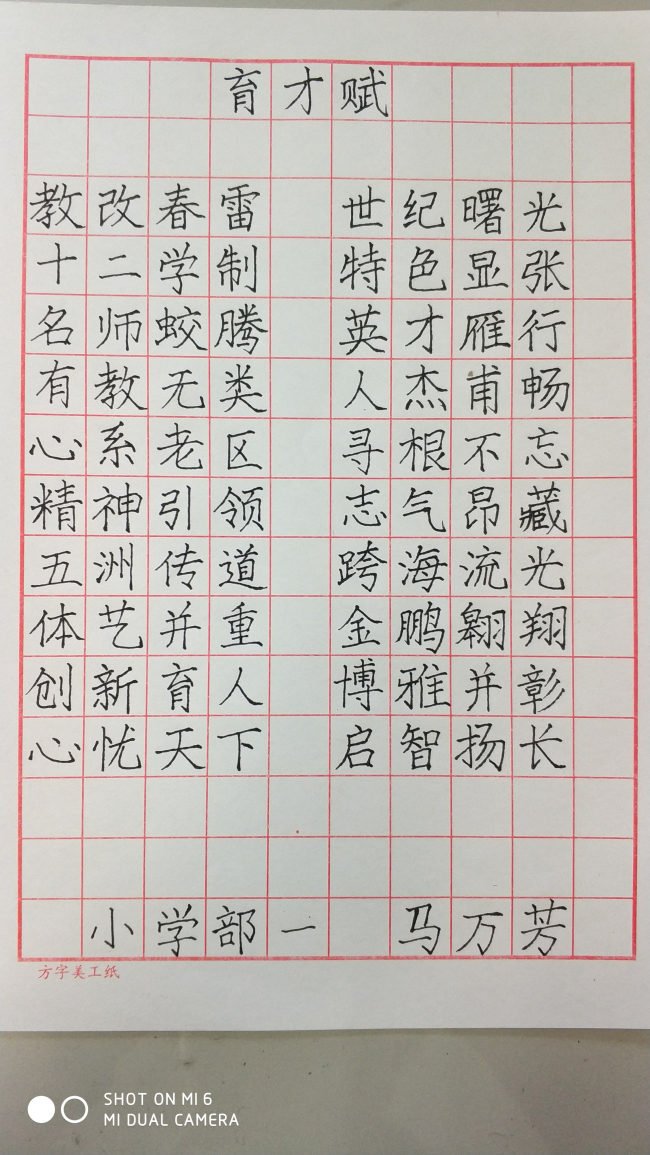 育才赋
教改春雷 世纪曙光
十二学制 特色显张
名师蛟腾 英才雁行
有教无类 人杰甫畅
心系老区 寻根不忘
精神引领 志气昂藏
五洲传道 跨海流光
体艺并重 金鹏翱翔
创新育人 博雅并彰
心忧天下 启智扬长
小学部一 马万芳
方字美工纸
SHOT ON MI 6
MI DUAL CAMERA